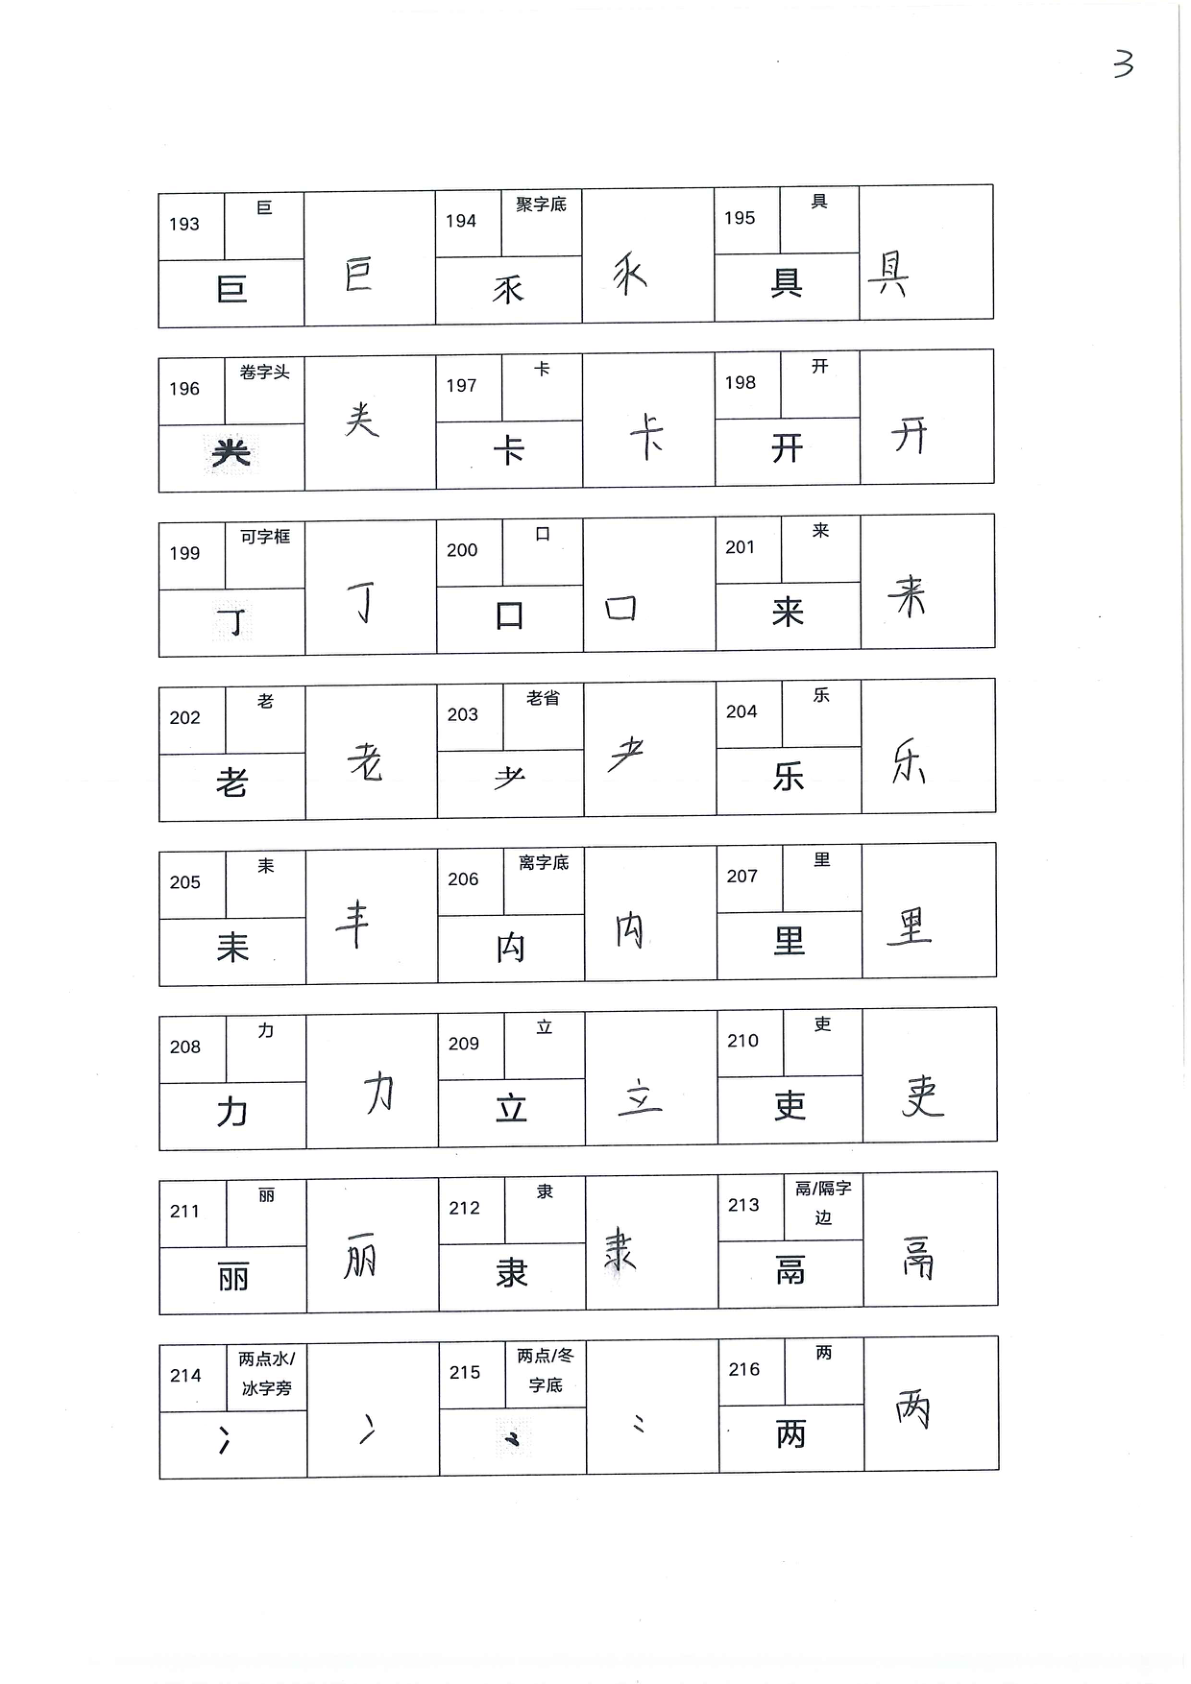 3
193 巨 巨 巨
194 聚字底 乑 乑
195 具 具 具
196 卷字头 龹 龹
197 卡 卡 卡
198 开 开 开
199 可字框 丁 丁
200 口 口 口
201 来 来 来
202 老 老 老
203 老省 耂 耂
204 乐 乐 乐
205 耒 耒 丰
206 离字底 禸 禸
207 里 里 里
208 力 力 力
209 立 立 立
210 吏 吏 吏
211 丽 丽 丽
212 隶 隶 隶
213 鬲/隔字边 鬲 鬲
214 两点水/冰字旁 冫 冫
215 两点/冬字底 ⺀ ⺀
216 两 两 两